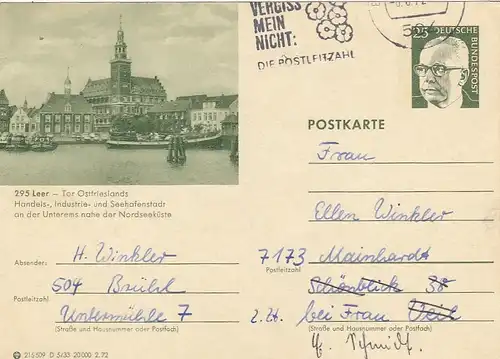 VERGISS
MEIN
NICHT:
DIE POSTLEITZAHL
25
DEUTSCHE
BUNDESPOST
POSTKARTE
295 Leer – Tor Ostfrieslands
Handels-, Industrie- und Seehafenstadt
an der Unterems nahe der Nordseeküste
Absender:
H. Winkler
504 Brühl
Postleitzahl
Untermühle 7
(Straße und Hausnummer oder Postfach)
215/509 D 5/33 20 000 2.72
Frau
Ellen Winkler
7173 Mainhardt
Postleitzahl
Schönblick 38
z. Zt. bei Frau Veil
(Straße und Hausnummer oder Postfach)
Schmidt.